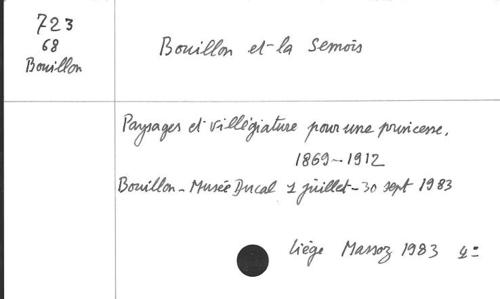 723
68
Bouillon
Bouillon et la Semois
Paysages et villégiature pour une princesse,
1869-1912
Bouillon - Musée Ducal 1 juillet - 30 sept 1983
Liège Massoz 1983 4=